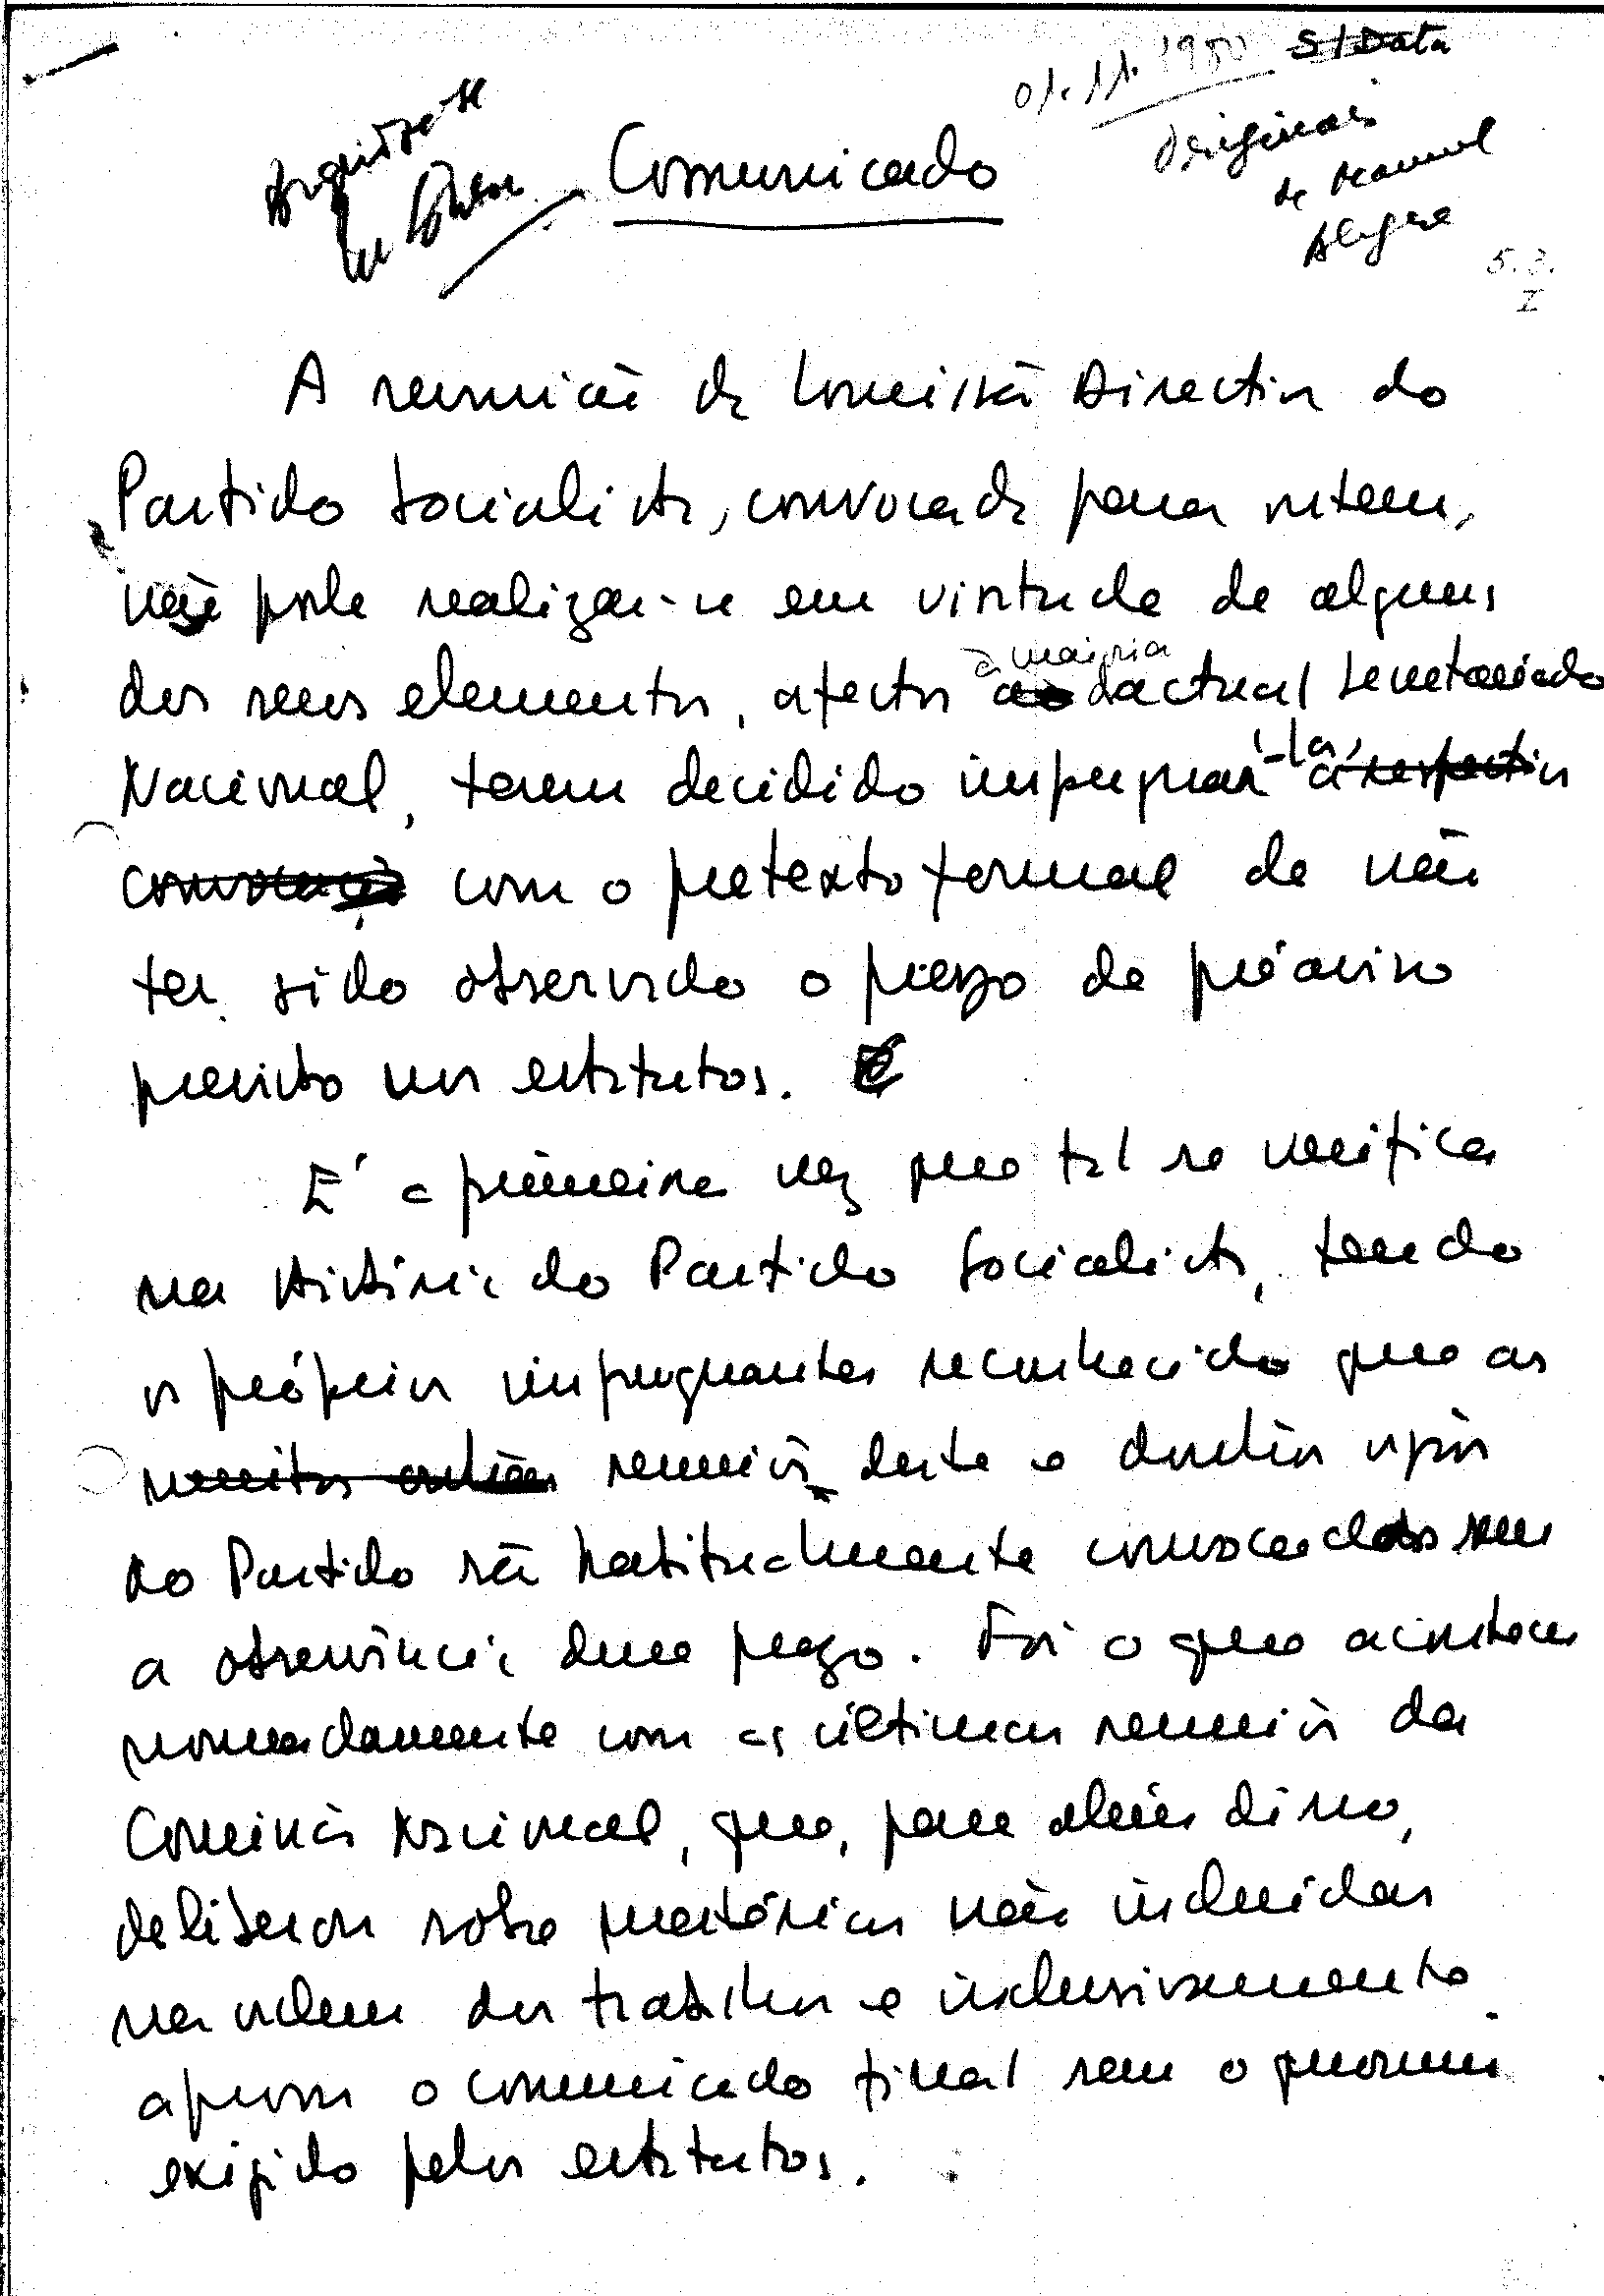 01.11.1980 S/Data
Arquive-se
Comunicado
Originais
de Manuel
Alegre
5.2.
I
A reunião da Comissão Directiva do
Partido Socialista, convocada para ontem,
não pôde realizar-se em virtude de alguns
dos seus elementos, afectos à maioria do actual Secretariado
Nacional, terem decidido impugnar-la, a respectiva
convocação com o pretexto formal de não
ter sido observado o prazo de pré-aviso
previsto nos estatutos.
É a primeira vez que tal se verifica
na História do Partido Socialista, tendo
os próprios impugnantes reconhecido que as
reuniões deste e doutros orgãos
do Partido são habitualmente convocados sem
a observância desse prazo. Foi o que aconteceu
nomeadamente com as últimas reuniões da
Comissão Nacional, que, para além disso,
deliberou sobre matérias não incluidas
na ordem dos trabalhos e inclusivamente
aprovou o comunicado final sem o quorum
exigido pelos estatutos.